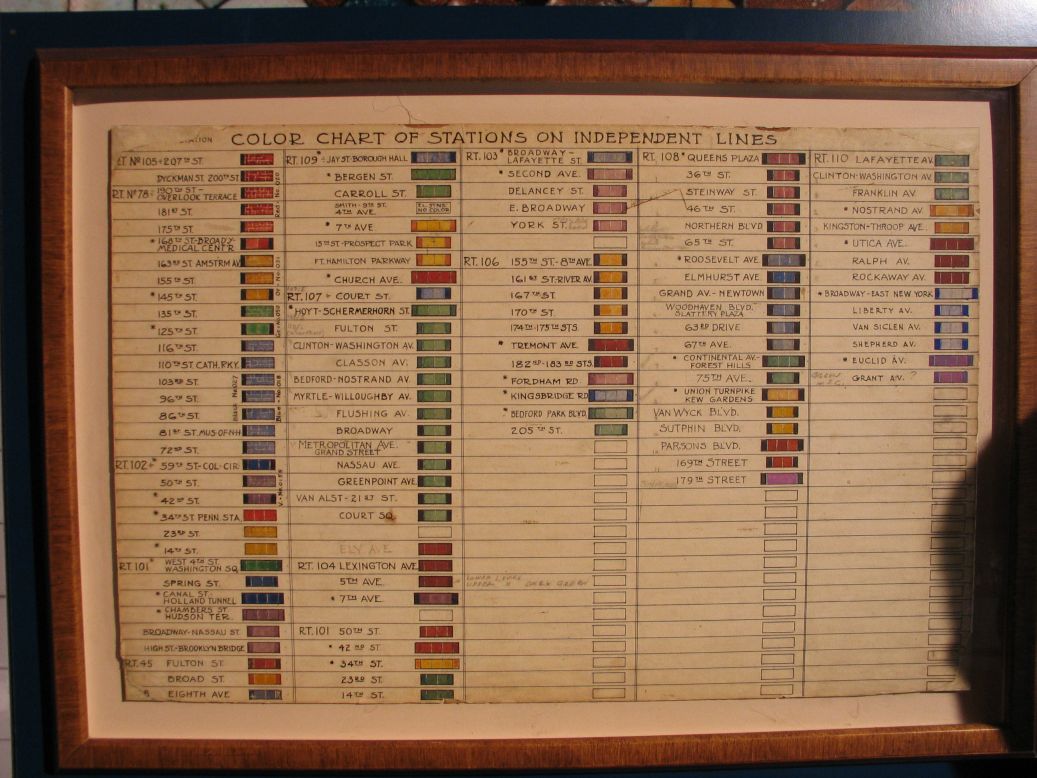 STATION
COLOR CHART OF STATIONS ON INDEPENDENT LINES
RT. Nº105 207TH ST.
DYCKMAN ST. 200TH ST.
RT. Nº78 190TH ST-
OVERLOOK TERRACE
181ST ST.
175TH ST.
*168TH ST-BROADY-
MEDICAL CENT'R
163RD ST AMSTRM AV
155TH ST.
*145TH ST.
135TH ST.
*125TH ST.
116TH ST.
110TH ST CATH.PKY.
103RD ST.
96TH ST.
86TH ST.
81ST ST. MUS-OF-N-H
72ND ST.
RT.102 * 59TH ST-COL-CIR
50TH ST.
* 42ND ST.
*34TH ST PENN. STA.
23RD ST.
* 14TH ST.
RT.101 * WEST 4TH ST.
WASHINGTON SQ.
SPRING ST.
* CANAL ST.
HOLLAND TUNNEL
* CHAMBERS ST.
HUDSON TER.
BROADWAY-NASSAU ST.
HIGH ST.-BROOKLYN BRIDGE
RT.45 FULTON ST.
BROAD ST.
EIGHTH AVE
RT. 109 * JAY ST. BOROUGH HALL
* BERGEN ST.
CARROLL ST.
SMITH-9TH ST.
4TH AVE.
EL. STNS
NO COLOR
* 7TH AVE
15TH ST.-PROSPECT PARK
FT. HAMILTON PARKWAY
* CHURCH AVE.
RT.107 COURT ST.
*HOYT-SCHERMERHORN ST.
FULTON ST.
CLINTON-WASHINGTON AV.
CLASSON AV.
BEDFORD-NOSTRAND AV.
MYRTLE-WILLOUGHBY AV.
FLUSHING AV.
BROADWAY
METROPOLITAN AVE.
GRAND STREET
NASSAU AVE.
GREENPOINT AVE
VAN ALST-21ST ST.
COURT SQ.
ELY AVE.
RT. 104 LEXINGTON AVE
5TH AVE.
* 7TH AVE.
RT.101 50TH ST.
* 42ND ST.
* 34TH ST.
23RD ST.
14TH ST.
RT.103 * BROADWAY-
LAFAYETTE ST.
* SECOND AVE.
DELANCEY ST.
E. BROADWAY
YORK ST.
RT.106 155TH ST.-8TH AVE.
161ST ST.-RIVER AV
167TH ST.
170TH ST.
174TH-175TH STS.
* TREMONT AVE.
182ND-183RD STS.
* FORDHAM RD.
* KINGSBRIDGE RD
* BEDFORD PARK BLVD.
205TH ST.
UPPER " DARK GREEN
RT. 108 * QUEENS PLAZA
36TH ST.
STEINWAY ST.
46TH ST.
NORTHERN BLVD
65TH ST.
* ROOSEVELT AVE.
ELMHURST AVE.
GRAND AV.-NEWTOWN
WOODHAVEN BLVD.
SLATTERY PLAZA
63RD DRIVE
67TH AVE.
* CONTINENTAL AV.-
FOREST HILLS
75TH AVE.
* UNION TURNPIKE
KEW GARDENS
VAN WYCK BLVD.
SUTPHIN BLVD.
PARSONS BLVD.
169TH STREET
179TH STREET
RT. 110 LAFAYETTE AV.
CLINTON-WASHINGTON AV.
FRANKLIN AV.
* NOSTRAND AV.
KINGSTON-THROOP AVE.
* UTICA AVE.
RALPH AV.
ROCKAWAY AV.
*BROADWAY-EAST NEW YORK
LIBERTY AV.
VAN SICLEN AV.
SHEPHERD AV.
* EUCLID AV.
GRANT AV. ?